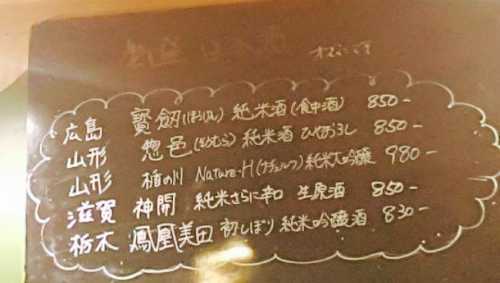 日本酒
広島 寳剱(ほうけん) 純米酒(食中酒) 850-
山形 惣邑(そうむら) 純米酒 ひやおろし 850-
山形 楯の川 Nature-H(ナチュルフ) 純米大吟醸 980-
滋賀 神開 純米さらに辛口 生原酒 850-
栃木 鳳凰美田 初しぼり 純米吟醸酒 830-